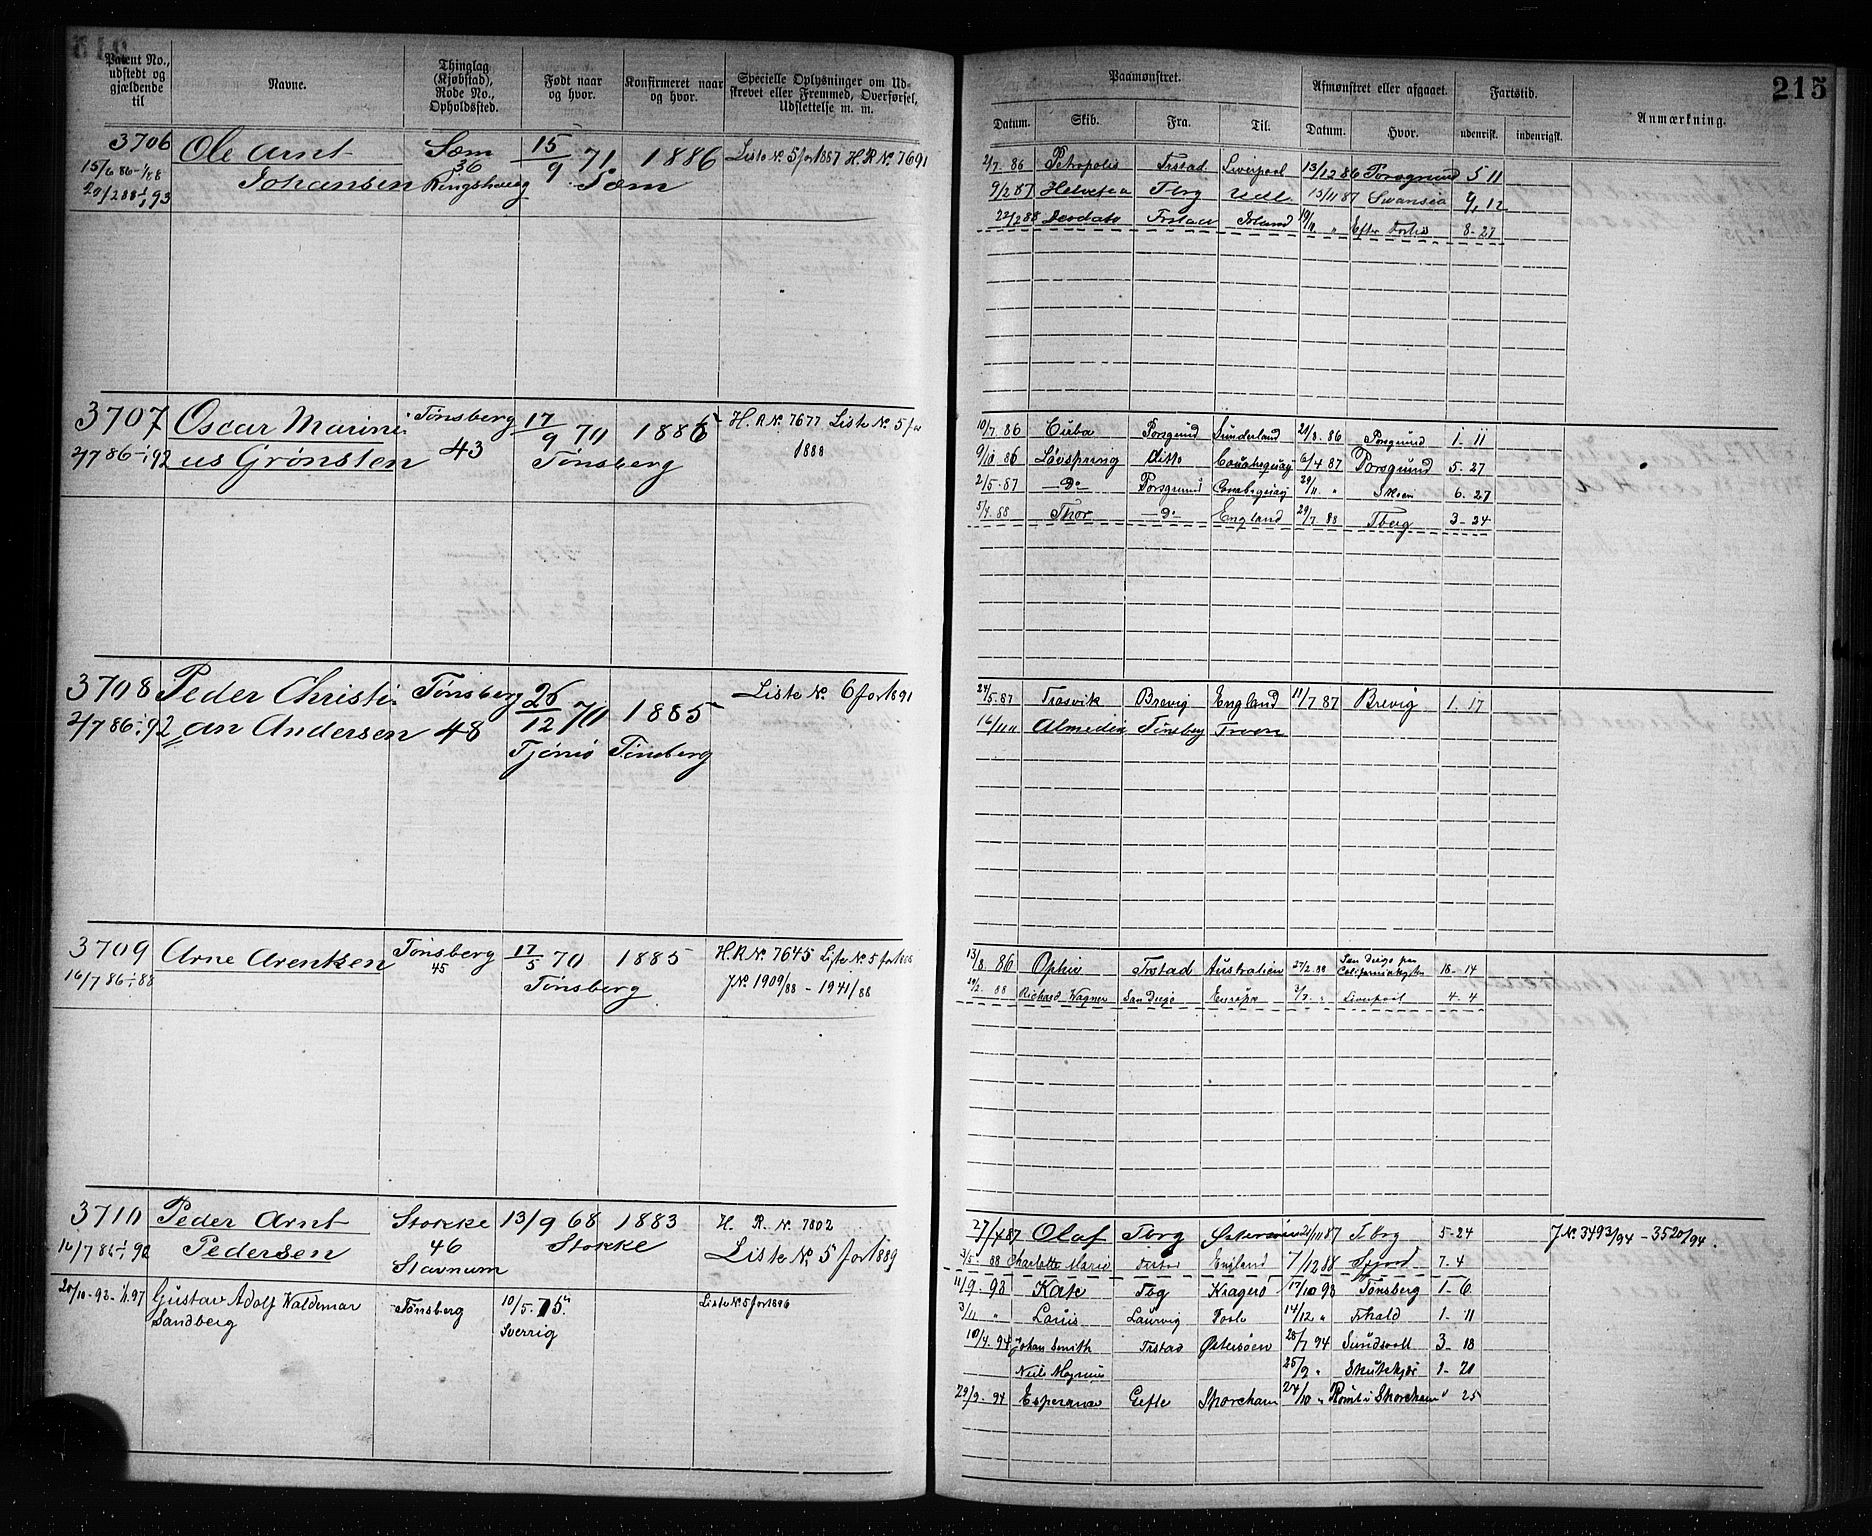 215
Patent No., udstedt og gjældende til
Navne.
Thinglag (Kjøbstad), Rode No., Opholdssted.
Født naar og hvor.
Konfirmeret naar og hvor.
Specielle Oplysninger om Udskrevet eller Fremmed, Overførsel, Udslettelse m. m.
Paamønstret.
Afmønstret eller afgaaet.
Fartstid.
Anmærkning.
Datum. Skib. Fra. Til. Datum. Hvor. udenrigsk. indenrigsk.
3706 Ole Arnt Sæm 15/9 71. 1886 Liste No. 5 for 1887 H.R No. 7691
15/6 86-1/1 88 Johansen 36 Ringshaug Sæm
29/2 88-1/1 93
2/7 86 Petropolis Frstad Liverpool 13/12 86 Porsgrund 5 11
9/2 87 Helvesea Tbrg Udl 13/11 87 Swansea 9, 12
22/2 88 Deodata Frstad Irland 19/11 " Efter Forlis 8-27
3707 Oscar Marini- Tønsberg 17/9 70 1886 H.R No. 7677 Liste No. 5 for
2/7 86-1/1 92 us Grønsten 43 Tønsberg 1888
10/7. 86 Cuba Porsgrund Sunderland 21/8. 86 Porsgrund 1-11
9/10 86 Løvspring ditto 6/4 87 Porsgrund 5. 27
2/5. 87 -Do- Porsgrund 29/11 " Skien 6. 27
5/4. 88 Thor -Do- England 29/7. 88 Tberg 3-24
3708 Peder Christi- Tønsberg 26/12 70 1885 Liste No. 6 for 1891
2/7 86-1/1 92 an Andersen 48 Tjømø Tønsberg
24/5.87 Trosvik Brevig England 11/7.87 Brevig 1. 17
16/11 " Almedia Tønsberg Troon
3709 Arne Arentsen Tønsberg 17/5 70 1885 H.R No. 7645 Liste No. 5 for 1888
16/7 86-1/1 88 45 Tønsberg JNo. 1909/88 - 1941/88
13/8. 86 Ophir Frstad Australien 27/2. 88 San Diego 18-14
29/2. 88 Richard Wagner San Diego Europa 3/7. " Liverpool 4-4
3710 Peder Arnt Stokke 13/9 68 1883 H. R. No. 7802
16/7 86-1/1 90 Pedersen 46 Stavnum Stokke Liste No. 5 for 1889
27/4 87 Olaf Tbrg 21/11 87 Tbrg 5-24 JNo. 3493/94 - 3520/94.
3/5. 88 Charlotte Marie England 7/12 88 7-4
20/10-93-1/1.97 Gustav Adolf Waldemar Tønsberg 10/5. 75. Liste No. 5 for 1896
Sandberg Sverrig
11/9. 93 Kate Tbg Kragerø 17/10 93 Tønsberg 1-6
3/11 " Louis Laurvig Poole 14/12 " Frhald 1-11
10/4. 94 Johan Smith Frstad Østersøen 25/7 94 Sundsvall 3-18
Niels Magnus 25/9 " Skutskjær 1-20
29/9-94 Esperance Gefle Shoreham 24/10 " Rømt i Shoreham " 25